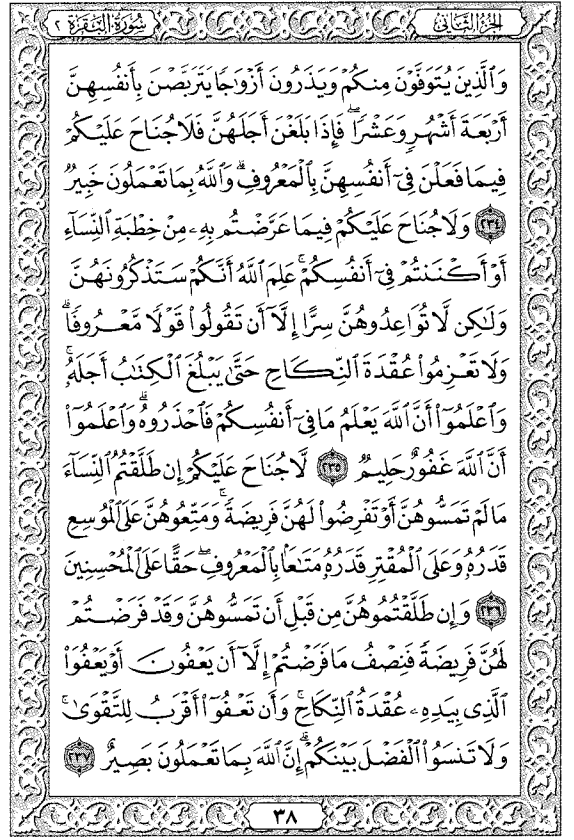 الجزء الثاني
سورة البقرة ٢
وَٱلَّذِينَ يُتَوَفَّوْنَ مِنكُمْ وَيَذَرُونَ أَزْوَٰجًا يَتَرَبَّصْنَ بِأَنفُسِهِنَّ
أَرْبَعَةَ أَشْهُرٍ وَعَشْرًا ۖ فَإِذَا بَلَغْنَ أَجَلَهُنَّ فَلَا جُنَاحَ عَلَيْكُمْ
فِيمَا فَعَلْنَ فِىٓ أَنفُسِهِنَّ بِٱلْمَعْرُوفِ ۗ وَٱللَّهُ بِمَا تَعْمَلُونَ خَبِيرٌ
٢٣٤ وَلَا جُنَاحَ عَلَيْكُمْ فِيمَا عَرَّضْتُم بِهِۦ مِنْ خِطْبَةِ ٱلنِّسَآءِ
أَوْ أَكْنَنتُمْ فِىٓ أَنفُسِكُمْ ۚ عَلِمَ ٱللَّهُ أَنَّكُمْ سَتَذْكُرُونَهُنَّ
وَلَٰكِن لَّا تُوَاعِدُوهُنَّ سِرًّا إِلَّآ أَن تَقُولُوا۟ قَوْلًا مَّعْرُوفًا ۚ
وَلَا تَعْزِمُوا۟ عُقْدَةَ ٱلنِّكَاحِ حَتَّىٰ يَبْلُغَ ٱلْكِتَٰبُ أَجَلَهُۥ ۚ
وَٱعْلَمُوٓا۟ أَنَّ ٱللَّهَ يَعْلَمُ مَا فِىٓ أَنفُسِكُمْ فَٱحْذَرُوهُ ۚ وَٱعْلَمُوٓا۟
أَنَّ ٱللَّهَ غَفُورٌ حَلِيمٌ ٢٣٥ لَّا جُنَاحَ عَلَيْكُمْ إِن طَلَّقْتُمُ ٱلنِّسَآءَ
مَا لَمْ تَمَسُّوهُنَّ أَوْ تَفْرِضُوا۟ لَهُنَّ فَرِيضَةً ۚ وَمَتِّعُوهُنَّ عَلَى ٱلْمُوسِعِ
قَدَرُهُۥ وَعَلَى ٱلْمُقْتِرِ قَدَرُهُۥ مَتَٰعًۢا بِٱلْمَعْرُوفِ ۖ حَقًّا عَلَى ٱلْمُحْسِنِينَ
٢٣٦ وَإِن طَلَّقْتُمُوهُنَّ مِن قَبْلِ أَن تَمَسُّوهُنَّ وَقَدْ فَرَضْتُمْ
لَهُنَّ فَرِيضَةً فَنِصْفُ مَا فَرَضْتُمْ إِلَّآ أَن يَعْفُونَ أَوْ يَعْفُوَا۟
ٱلَّذِى بِيَدِهِۦ عُقْدَةُ ٱلنِّكَاحِ ۚ وَأَن تَعْفُوٓا۟ أَقْرَبُ لِلتَّقْوَىٰ ۚ
وَلَا تَنسَوُا۟ ٱلْفَضْلَ بَيْنَكُمْ ۚ إِنَّ ٱللَّهَ بِمَا تَعْمَلُونَ بَصِيرٌ ٢٣٧
٣٨